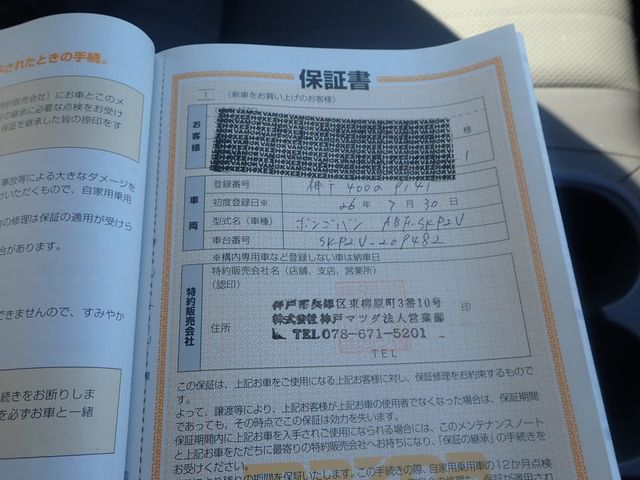 されたときの手続。
特約販売会社）にお車とこのメ
後の継承に必要な点検をお受け
保証を継承した旨の捺印をす
事故等による大きなダメージを
けいただくもので、自家用乗用
の修理は保証の適用が受けら
合があります。
できませんので、すみやか
続きをお断りしま
を必ずお車と一緒
保証書
1 （新車をお買い上げのお客様）
お客様
様
車両
登録番号 400 a 9141
初度登録日※ 26年 7月 30日
型式名（車種） ボンゴバン ABF-SKP2V
車台番号 SKP2V-209482
※構内専用車など登録しない車は納車日
特約販売会社
特約販売会社名（店舗、支店、営業所）
（認印）
神戸市兵庫区東柳原町3番10号
印
株式会社神戸マツダ法人営業部
住所
TEL078-671-5201
TEL
この保証は、上記お車をご使用になる上記お客様に対し、保証修理をお約束するもので
す。
よって、譲渡等により、上記お客様が上記お車の使用者でなくなった場合は、保証期間
であっても、その時点でこの保証は効力を失います。
保証期間内に上記お車を入手されご使用になられる場合には、このメンテナンスノート
と上記お車をただちに最寄りの特約販売会社へお持ちになり、「保証の継承」の手続きを
お受けください。
残りの期間を保証いたします。この手続きの際、自家用乗用車の12か月点検